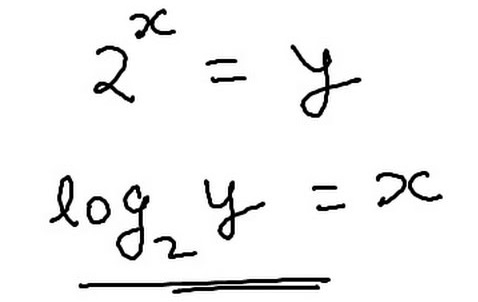 2^x = y
log₂ y = x